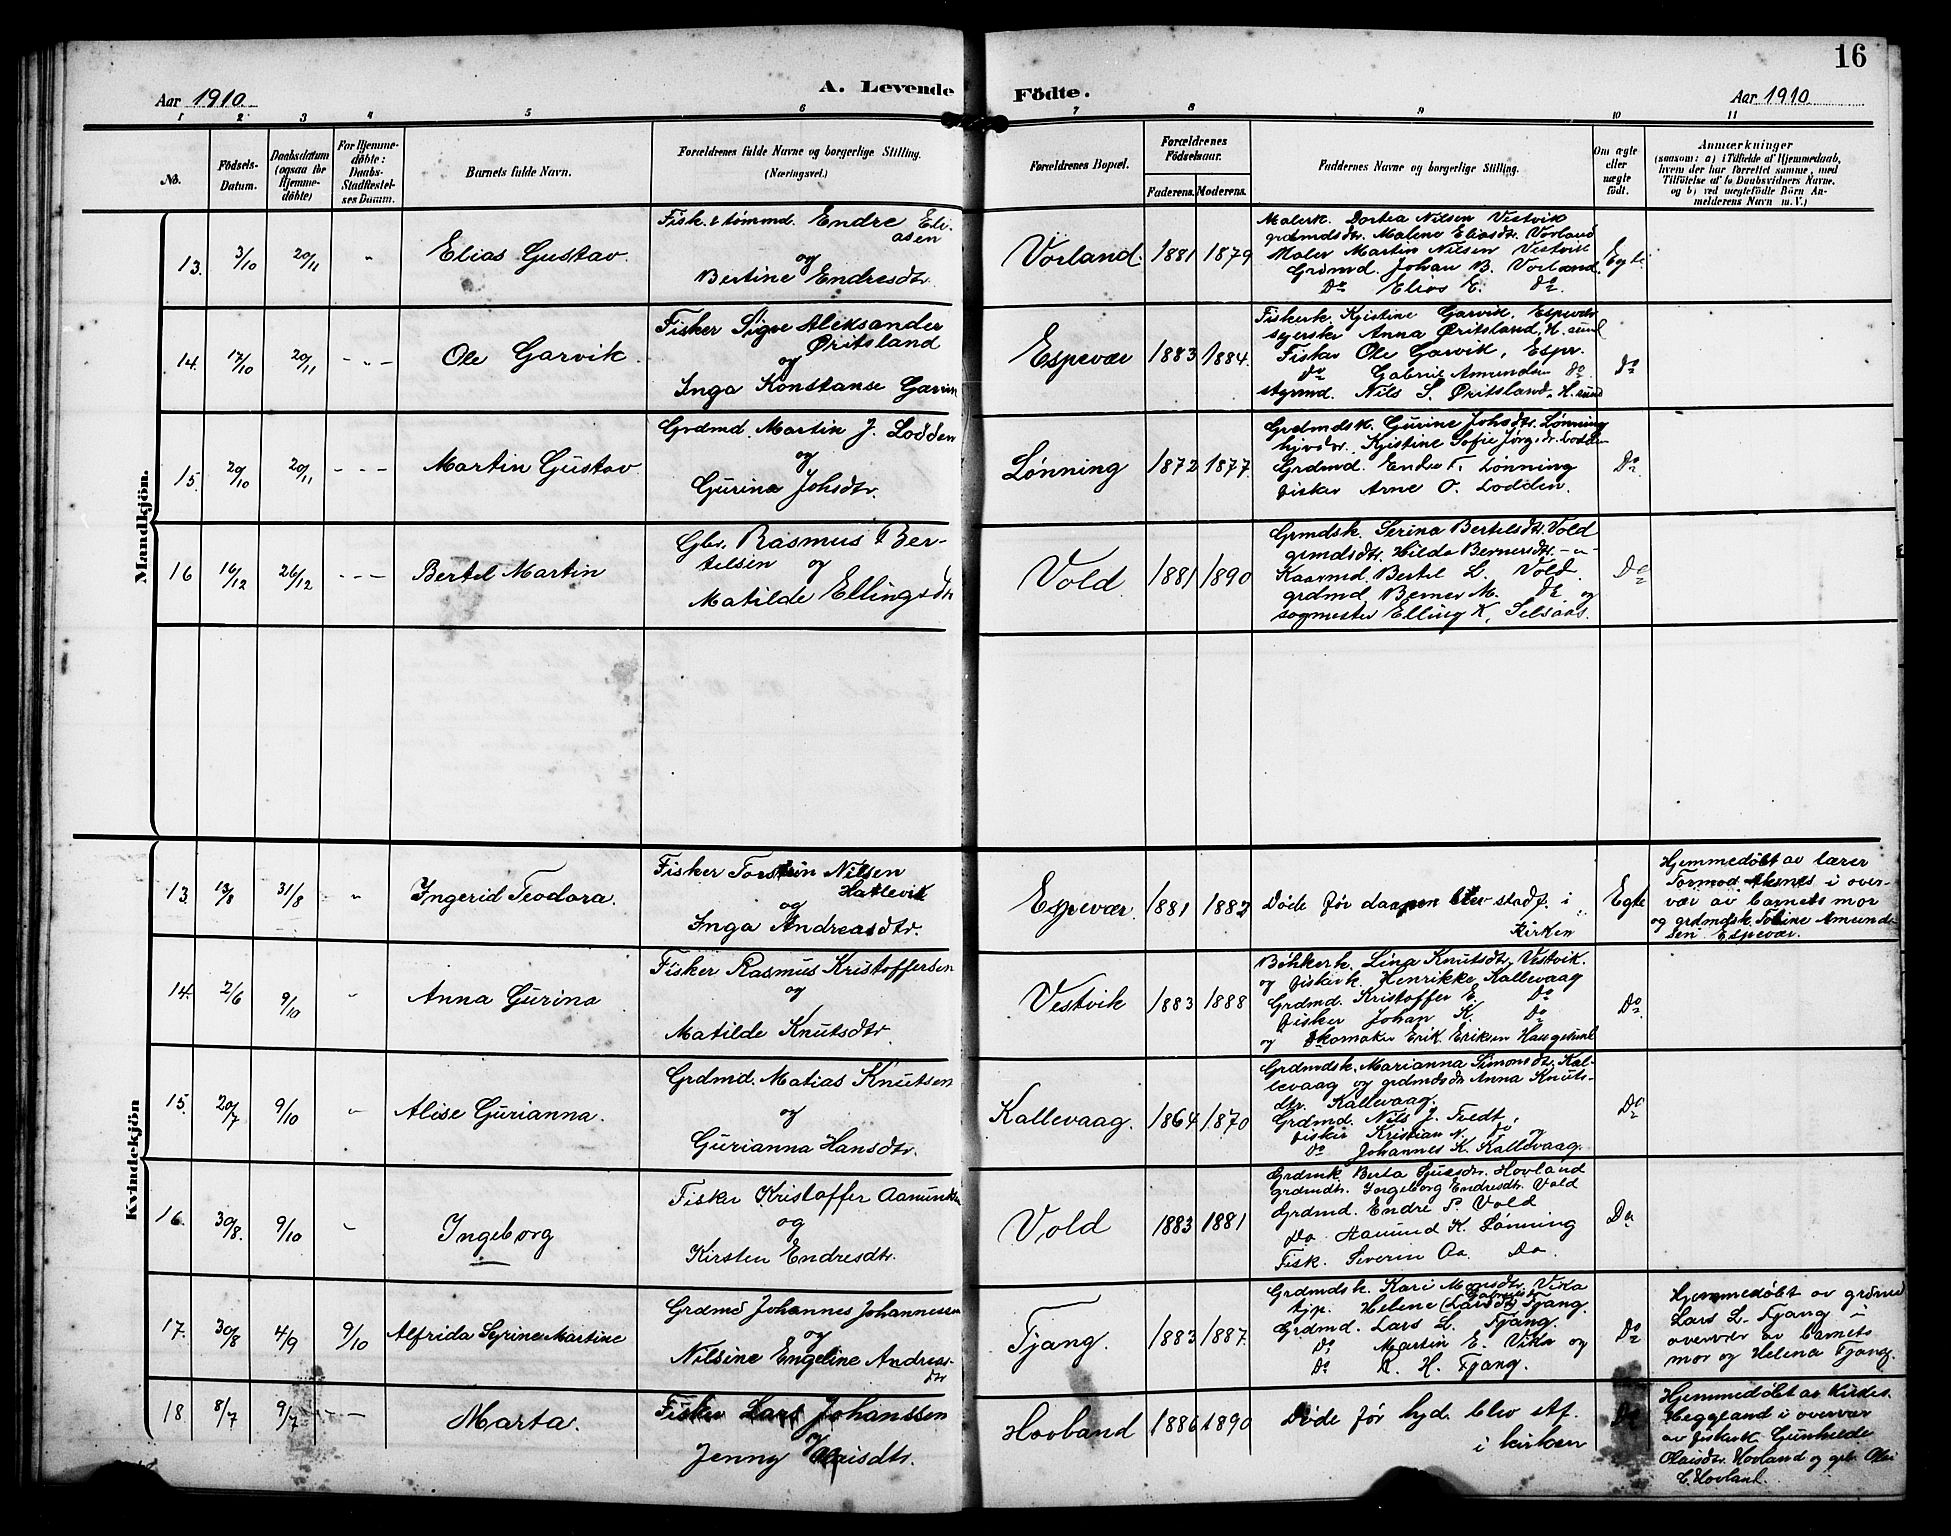 16
Aar 1910.
A. Levende
Födte.
Aar 1910
1 2 3 4 5 6 7 8 9 10 11
No.
Födsels-
Datum.
Daabsdatum
(ogsaa for
Hjemme-
döbte)
For Hjemme-
döbte:
Daabs-
Stadfæstel-
ses Datum.
Barnets fulde Navn.
Forældrenes fulde Navne og borgerlige Stilling.
(Næringsvei.)
Forældrenes Bopæl.
Forældrenes
Födselsaar.
Faderens. Moderens.
Faddernes Navne og borgerlige Stilling.
Om ægte
eller
uægte
födt.
Anmærkninger
(saasom: a) i Tilfælde af Hjemmedaab,
hvem der har forrettet samme, med
Tilföielse af to Daabsvidners Navne,
og b) ved uegtefödte Börn An-
melderens Navn m. V.)
Mandkjön.
13. 3/10 20/11 "
Elias Gustav.
Fisk. & tømmd. Endre Eli-
asen
og
Bertine Endresdtr.
Vorland. 1881 1879
Malerk. Dortea Nilsen Vestvik
grdmdsdtr. Malene Eliasdtr. Vorland
Maler Martin Nilsen Vestvik
Grdmd. Johan B. Vorland.
Do Elias E. do.
Egte.
14. 17/10 20/11 - - -
Ole Garvik.
Fisker Sigve Aleksander
Øritsland
og
Inga Konstanse Garvik
Espevær 1883 1884.
Fiskerk. Kjistine Garvik, Espevær
syerske Anna Øritsland, H.sund
Fisker Ole Garvik, Espr.
do Gabriel Amundsen do.
styrmd. Nils S. Øritsland, H.sund
Do
15. 20/10 20/11 - - -
Martin Gustav
Grdmd. Martin J. Lodden
og
Gurina Johsdtr.
Lønning 1872 1877.
Grdmdsk. Gurine Johsdtr. Lønning
Kjistine Sofie Lodden
Grdmd. Endre T. Lønning
fisker Arne O. Lodden.
Do
16 16/12 26/12 - - -
Bertel Martin
Gbr. Rasmus Ber-
telsen og
Matilde Ellingsdtr
Vold 1881 1890
Grmdsk. Serina Bertelsdtr. Vold
grmdsdtr. Hilda Bernersdtr. -"-
Kaarmd. Bertel L. Vold.
grdmd Berner M. Do og
sogmester Elling K. Selsaas.
Do
Kvindekjön
13. 13/8 31/8 "
Ingerid Teodora.
Fisker Torstein Nilsen
Hatlevik
og
Inga Andreasdtr.
Espevær. 1881 1882
Døde før daapen blev stadf. i
Kirken
Egte
Hjemmedøbt av lærer
Tormod Aknes i over-
vær av barnets mor
og grdmdsk. Tobine Amund-
sen Espevær.
14. 2/6 9/10 "
Anna Gurina
Fisker Rasmus Kristoffersen
og
Matilde Knutsdtr.
Vestvik 1883 1888
Bøkkerk. Lina Knutsdtr. Vestvik.
og fiskerk. Henrikke Kallevaag
Grdmd. Kristoffer E. Do
fisker Johan K. Do
og skomaker Erik Eriksen Haugesund
Do.
15. 20/7 9/10 "
Alise Gurianna.
Grdmd. Matias Knutsen
og
Gurianna Hansdtr.
Kallevaag. 1864 1870
Grdmdsk. Marianna Simonsdtr. Kal-
levaag og grdmdsdtr Anna Knuts-
dtr. Kallevaag.
Grdmd. Nils J. Tvedt,
fisker Kristian N. do og
do Johannes K. Kallevaag.
Do
16. 30/8. 9/10 "
Ingeborg
Fisker Kristoffer Aamundsen
og
Kirsten Endresdtr.
Vold 1883 1881
Grdmk Berta Hovland
grdmdtr. Ingeborg Endresdtr. Vold
Grdmd. Endre P. Vold
Do. Aamund K. Lønning
Fisk. Severin Aa. Do.
Do
17. 30/8 4/9 9/10
Alfrida Syrine Martine
Grdmd Johannes Johannessen
og
Nilsine Engeline Andreas-
dtr
Tjang. 1883 1887.
Grdmdsk. Kari Monsdtr. Vika
Helene (Larsdtr) Tjang.
Grdmd. Lars L. Tjang.
Do Martin E. Vika og
Do K. H. Tjang.
Do
Hjemmedøbt av grdmd
Lars L. Tjang i
overvær av barnets
mor og Helena Tjang.
18. 8/7 9/7 - - -
Marta.
Fisker Lars Johanssen
Jenny
Hovland 1886 1890
Døde før hjd. blev stf.
i kirken
Do
Hjemmedøbt av Kirkes.
Heggland i overvær
av fiskerk. Gunhilde
Olaisdtr. Hovland og gbr. Olai
C. Hovland.